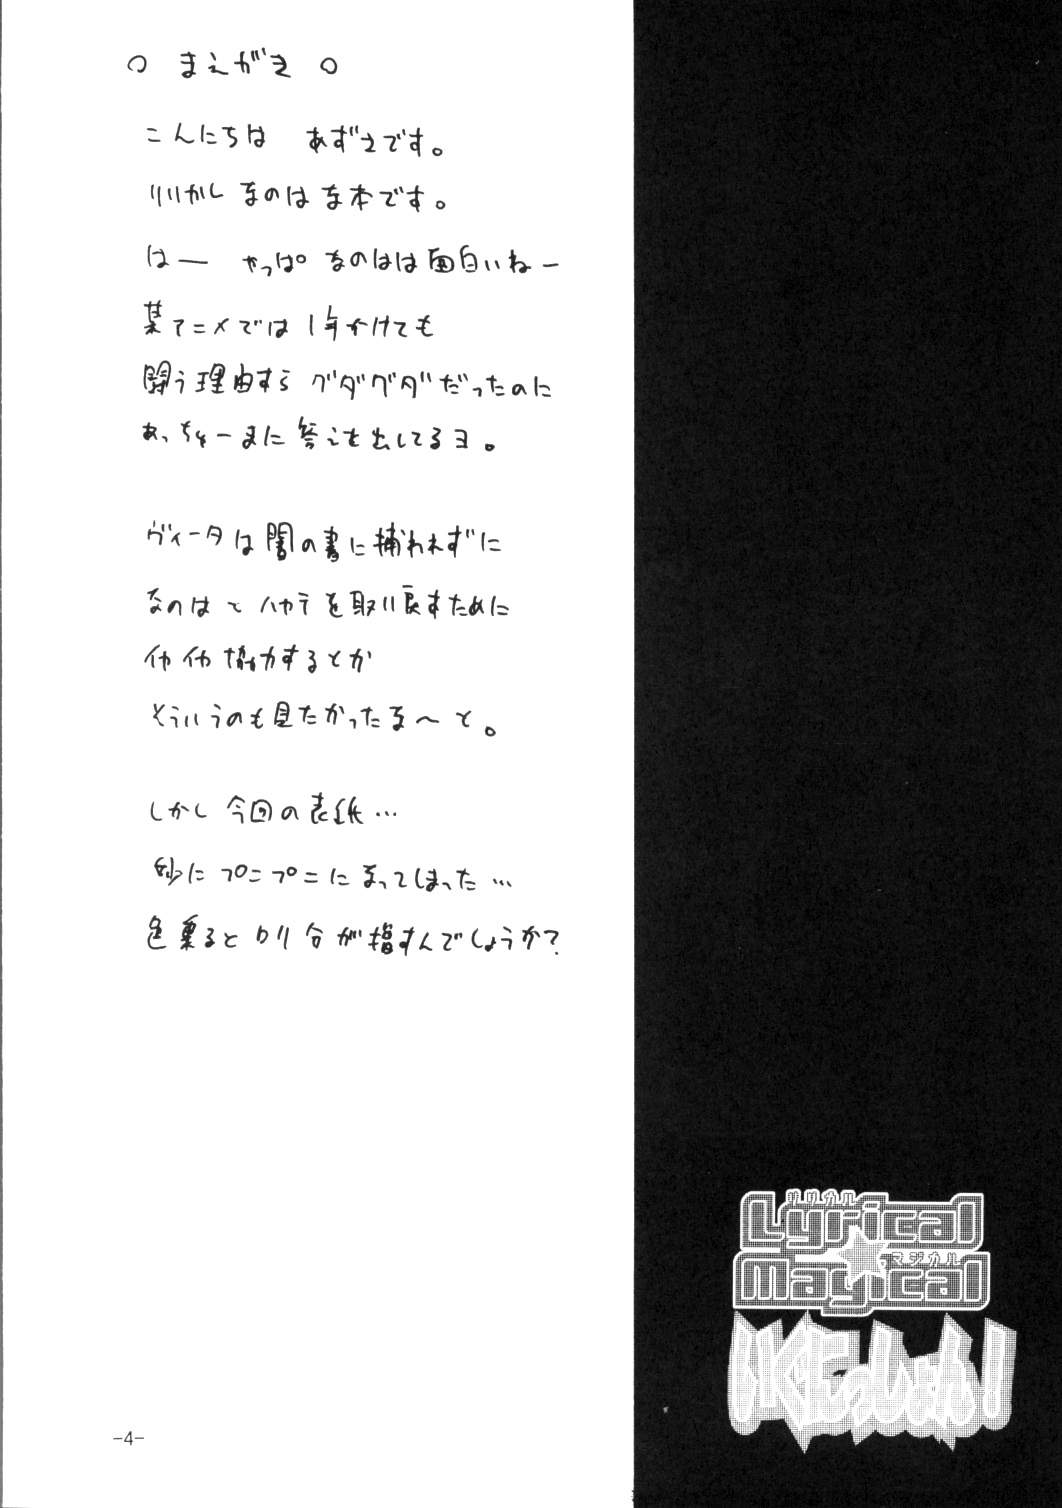 ○ まえがき ○
こんにちは あずさです。
リリカルなのはな本です。
はー やっぱ なのはは面白いねー
某アニメでは1年かけても
闘う理由すら グダグダだったのに
あっちゅーまに答えを出してるヨ。
ヴィータは闇の書に捕われずに
なのはとハヤテを取り戻すために
イヤイヤ協力するとか
そういうのも見たかったな〜と。
しかし今回の表紙…
妙にプニプニになってしまった…
色栗ると ロリ分が指すんでしょうか?
リリカル
Lyrical
マジカル
Magical
-4-